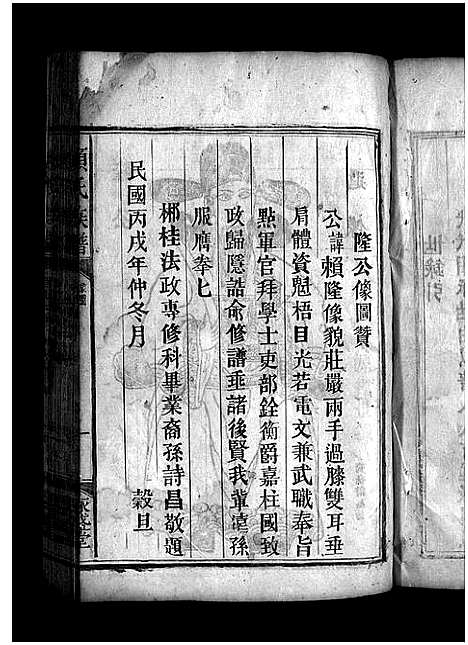 隆公像圖贊
公諱賴隆像貌莊嚴兩手過膝雙耳垂
肩體資魁梧目光若電文兼武職奉旨
點軍官拜學士吏部銓衡爵嘉柱國致
政歸隱誥俞修譜垂諸後賢我輩遠孫
服膺奉七
郴桂法政專修科畢業裔孫詩昌敬題
民國丙戌年仲冬月 穀旦
氏族譜